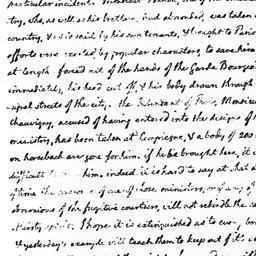 particular incident.
try, she, as well as his brother, and was taken
country, & it is said by his own tenants, & brought to Paris
efforts were exerted by popular characters, to save him
at length forced out of the hands of the Garde Bourgeoise
immediately, his head cut off, & his body drawn through
cipal streets of the city. the Intendant of Paris, Monsieur
chauvigny, accused of having entered into the designs of
ministry, has been taken at Compiegne, & a body of 200
on horseback are gone for him. if he be brought here, it
difficult him. indeed it is hard to say at what
time the presence of one of those ministers, or of any of
obnoxious of the fugitive courtiers, will not rekindle the
thirsty spirit. I hope it is extinguished as to every
& yesterday's example will teach them to keep out of it's